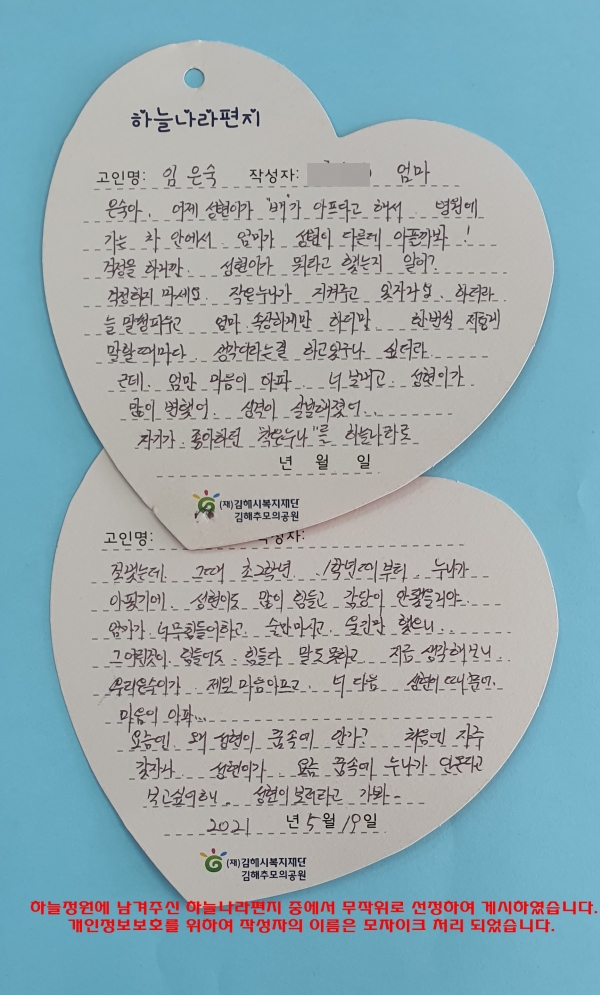 하늘나라편지
고인명: 임은숙 작성자: 엄마
은숙아. 어제 성현이가 "배"가 아프다고 해서 병원에
가는 차 안에서 엄마가 성현이 다른데 아플까봐!
걱정을 하니깐 성현이가 뭐라고 했는지 알어?
걱정하지 마세요 작은누나가 지켜주고 있자나요. 하더라
늘 말썽피우고 엄마 속상하게만 하더만 한번씩 저렇게
말할때마다 생각이라는걸 하고있구나 싶더라
근데. 엄만 마음이 아파. 너 보내고 성현이가
많이 변했어. 성격이 달라졌어..
자기가 좋아하던 "작은누나"를 하늘나라로
년 월 일
(재)김해시복지재단
김해추모의공원
고인명: 작성자:
보냈는데 그때 초2학년. 1학년때부터. 누나가
아팠기에 성현이도 많이 힘들고 감당이 안됐을리야.
엄마가 너무힘들어하고 술만마시고 울긴만 했으니..
그어린것이 힘들어도 힘들다 말도못하고 지금 생각해보니
우리은숙이가 제일 마음아프고. 너 다음 성현이 때문에.
마음이 아파...
요즘엔 왜 성현이 꿈속에 안가? 처음엔 자주
갔자나 성현이가 요즘 꿈속에 누나가 안온다고
보고싶어해. 성현이보러라고 가봐~
2021 년 5월 19일
(재)김해시복지재단
김해추모의공원
하늘정원에 남겨주신 하늘나라편지 중에서 무작위로 선정하여 게시하였습니다.
개인정보보호를 위하여 작성자의 이름은 모자이크 처리 되었습니다.